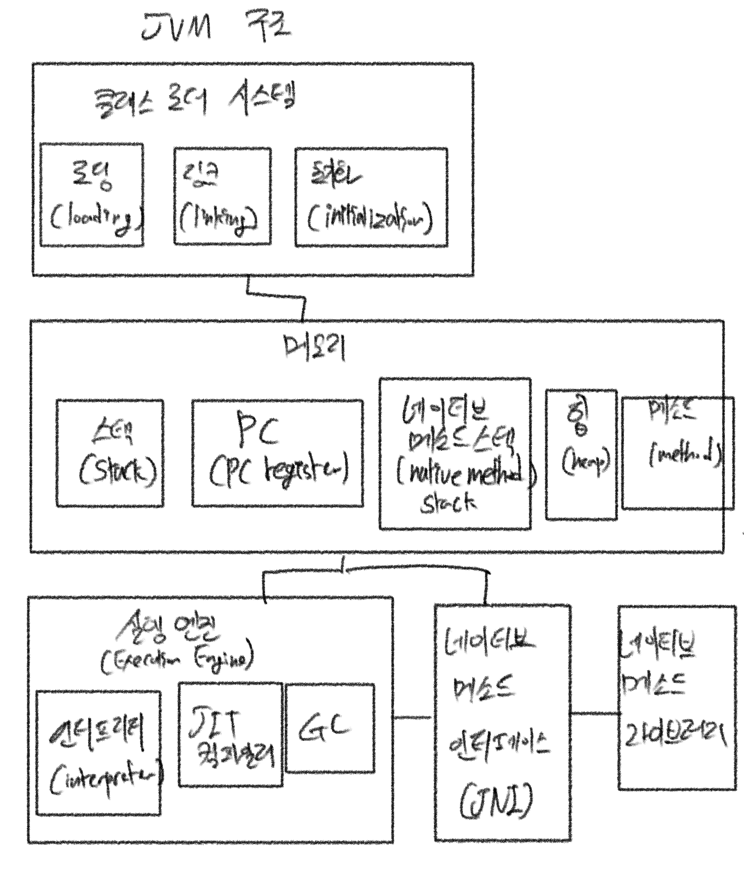 JVM 구조
클래스 로더 시스템
로딩
(loading)
링크
(linking)
초기화
(initialization)
메모리
스택
(stack)
PC
(PC register)
네이티브
메소드스택
(native method)
stack
힙
(heap)
메소드
(method)
실행 엔진
(Execution Engine)
인터프리터
(interpreter)
JIT
컴파일러
GC
네이티브
메소드
인터페이스
(JNI)
네이티브
메소드
라이브러리